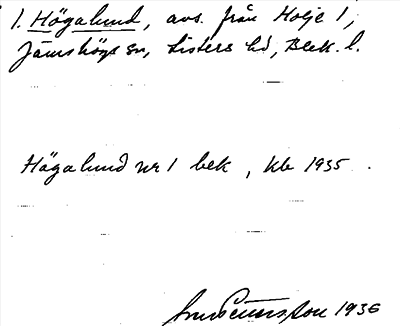 1. Högalund, avs. från Holje 1,
Jämshögs sn, Listers hd, Blek. l.
Högalund nr 1 bek, kb 1935.
1936